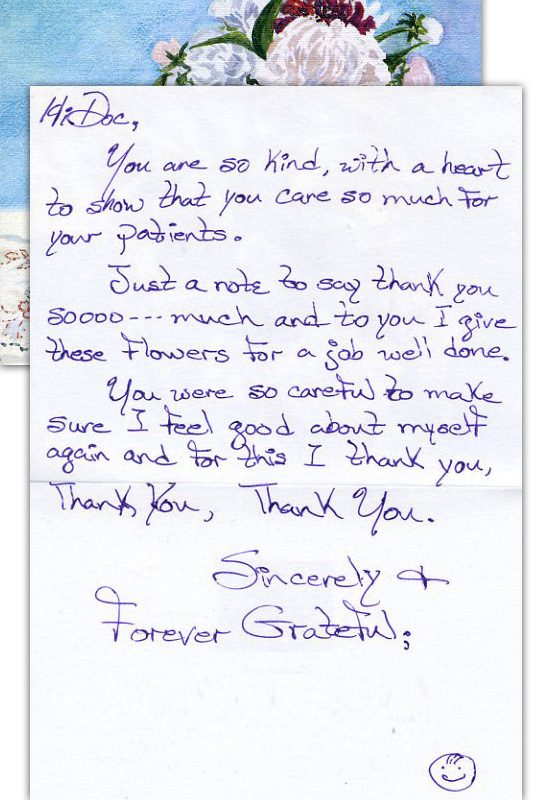 Hi Doc,
You are so kind, with a heart
to show that you care so much for
your patients.
Just a note to say thank you
soooo--- much and to you I give
these flowers for a job well done.
You were so careful to make
sure I feel good about myself
again and for this I thank you,
Thank You, Thank You.
Sincerely +
Forever Grateful;